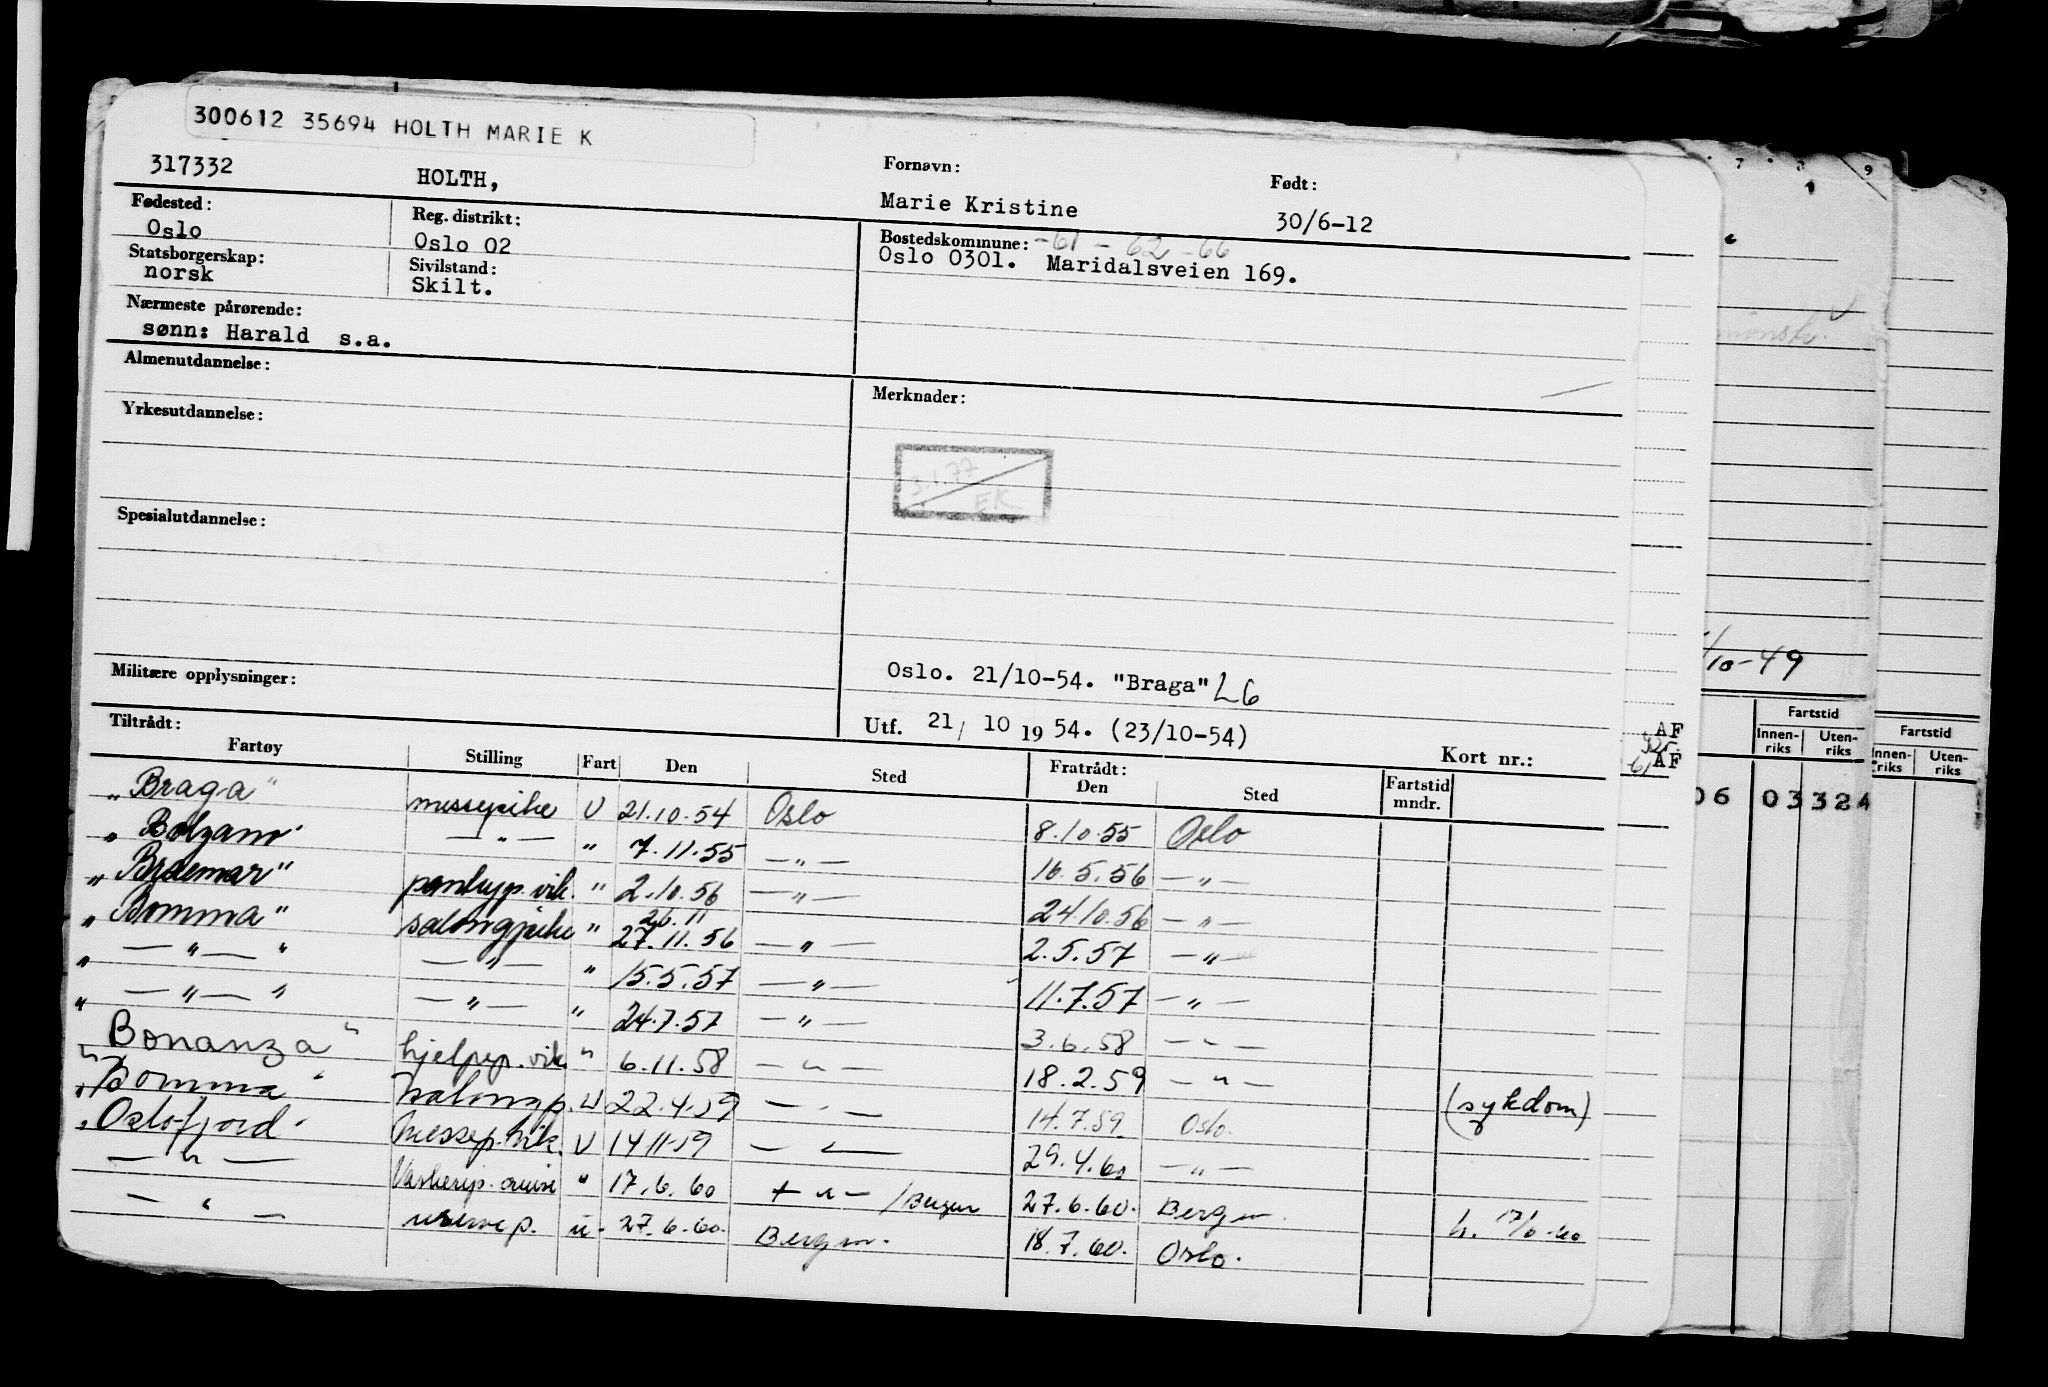 300612 35694 HOLTH MARIE K
317332 HOLTH, Fornavn: Født:
Marie Kristine 30/6-12
Fødested: Reg. distrikt: Bostedskommune: -61 - 62 - 66
Oslo Oslo 02 Oslo 0301. Maridalsveien 169.
Statsborgerskap: Sivilstand:
norsk Skilt.
Nærmeste pårørende:
sønn: Harald s.a.
Almenutdannelse: Merknader:
Yrkesutdannelse:
3.1.77
EK
Spesialutdannelse:
Militære opplysninger: Oslo. 21/10-54. "Braga" L6
Tiltrådt: Utf. 21/ 10 1954. (23/10-54) Kort nr.:
Fartøy Stilling Fart Den Sted Fratrådt: Den Sted Fartstid mndr.
"Braga" messepike U 21.10.54 Oslo 8.10.55 Oslo
"Bolzano" — " — " 7.11.55 — " — 16.5.56 — " —
"Braemar" pantryp. vik. " 2.10.56 — " — 24.10.56 — " —
26.11
"Bomma" salongpike " 27.11.56 — " — 2.5.57 — " —
" — " — " — " — " 15.5.57 — " — 11.7.57 — " —
" — " — " — " — " 24.7.57 — " — 3.6.58 — " —
"Bonanza" hjelpep. vik. " 6.11.58 — " — 18.2.59 — " — (sykdom)
"Bomma" salongp. U 22.4.59 — " — 14.7.59 Oslo.
"Oslofjord" Messep. vik. U 14.11.59 — " — 29.4.60 — " —
— " — " 17.6.60 — " — /Bergen 27.6.60. Bergen. h. 17/6-60
— " — reservep. u. 27.6.60. Bergen. 18.7.60. Oslo.
7 8 9
/10-49
AF
AF
Fartstid
Innen-riks Uten-riks
06 03 324
Fartstid
Innen-riks Uten-riks